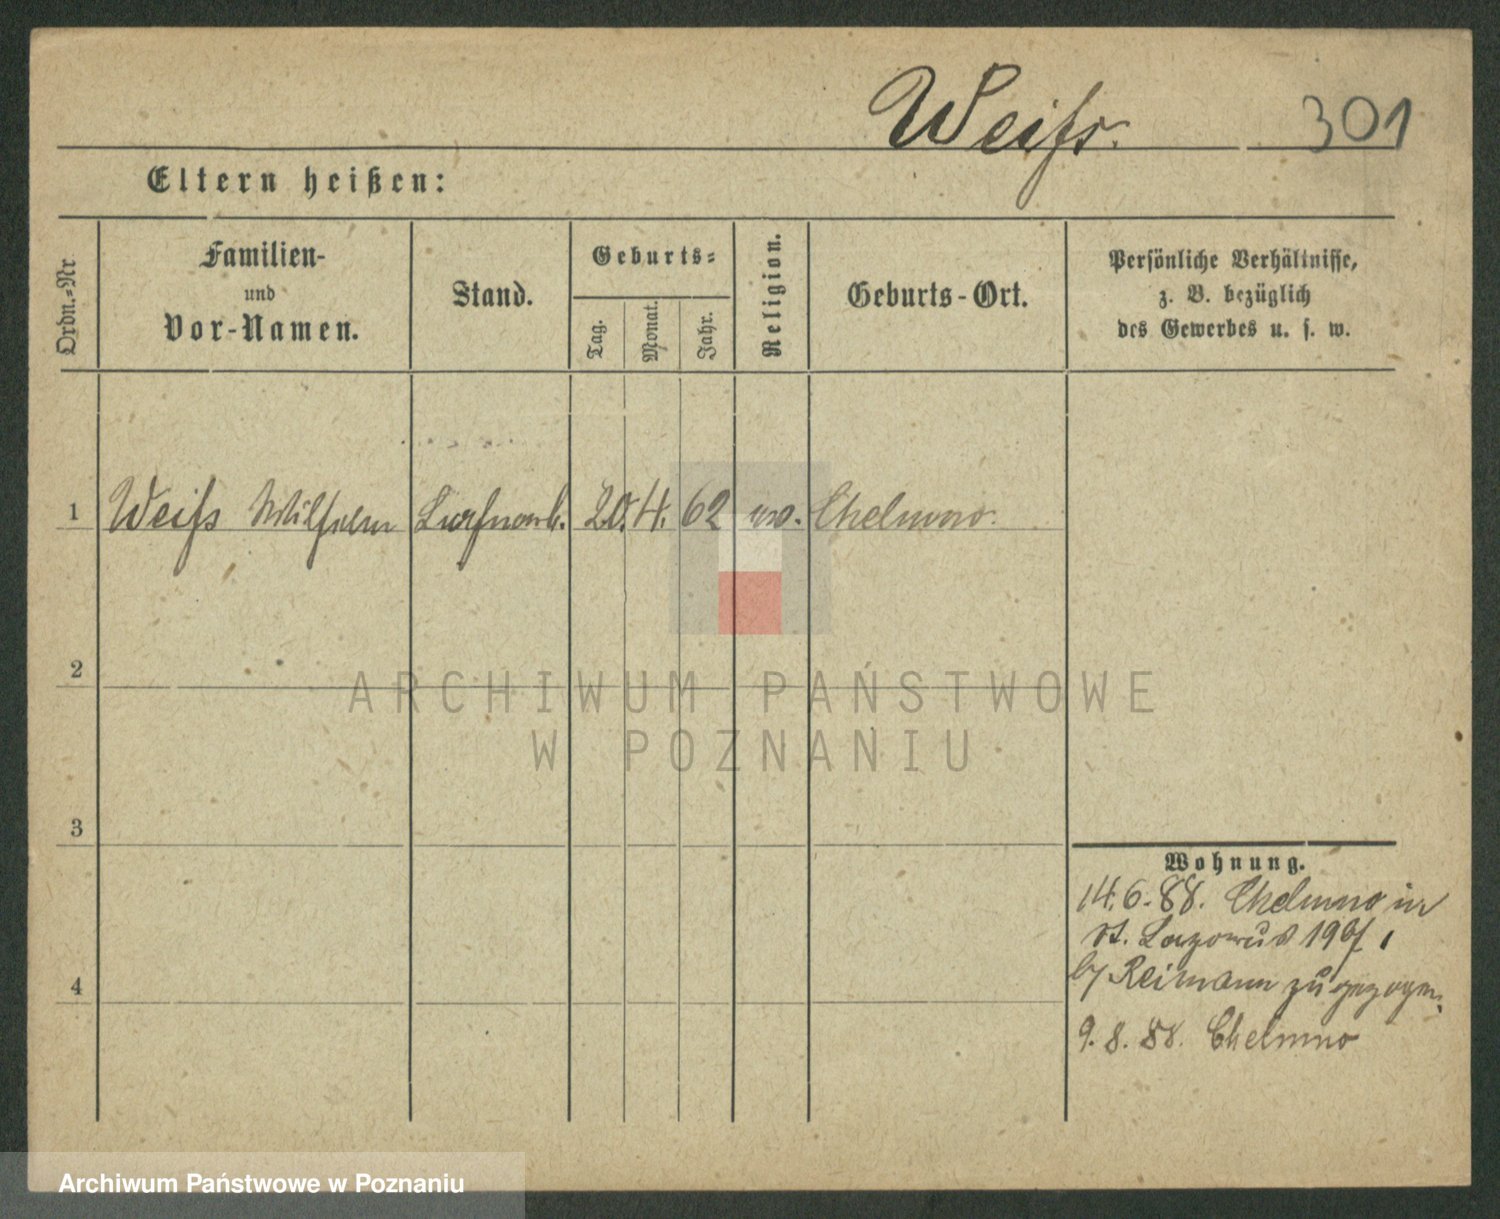 Weiß.
301
Eltern heißen:
Ordn.-Nr
Familien-
und
Vor-Namen.
Stand.
Geburts-
Tag.
Monat.
Jahr.
Religion.
Geburts-Ort.
Persönliche Verhältnisse,
z. B. bezüglich
des Gewerbes u. s. w.
1 Weiß Wilhelm 20. 4. 62 ev. Chelmno.
2
3
4
Wohnung.
14. 6. 88. Chelmno in
St. Lazarus
b/ Reimann zugezogen.
9. 8. 88. Chelmno
ARCHIWUM PAŃSTWOWE
W POZNANIU
Archiwum Państwowe w Poznaniu